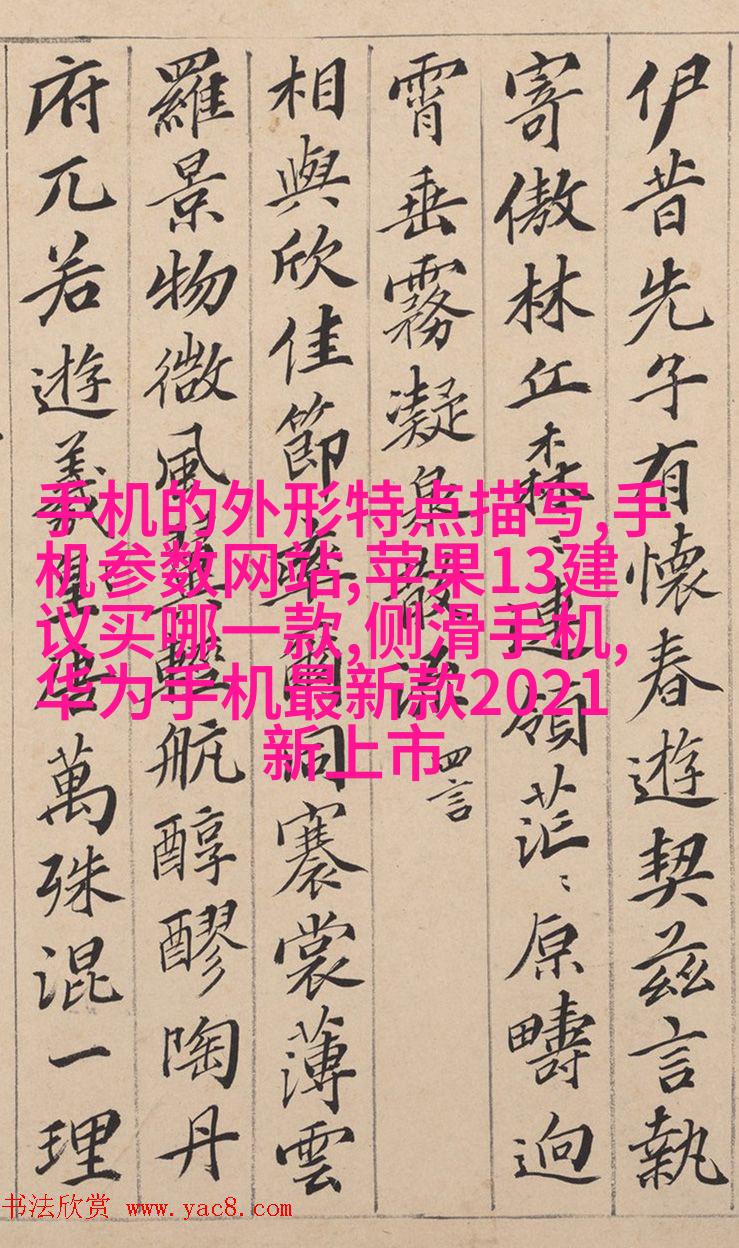 伊昔先子有懷春遊契茲言執
寄傲林丘森〻連領茫〻原疇逈
霄垂霧凝泉散流 四言
相與欣佳節率爾同褰裳薄雲
羅景物微風翼輕航醇醪陶丹
府兀若遊羲唐萬殊混一理
手机的外形特点描写,手
机参数网站,苹果13建
议买哪一款,侧滑手机,
华为手机最新款2021
新上市
书法欣赏 www.yac8.com